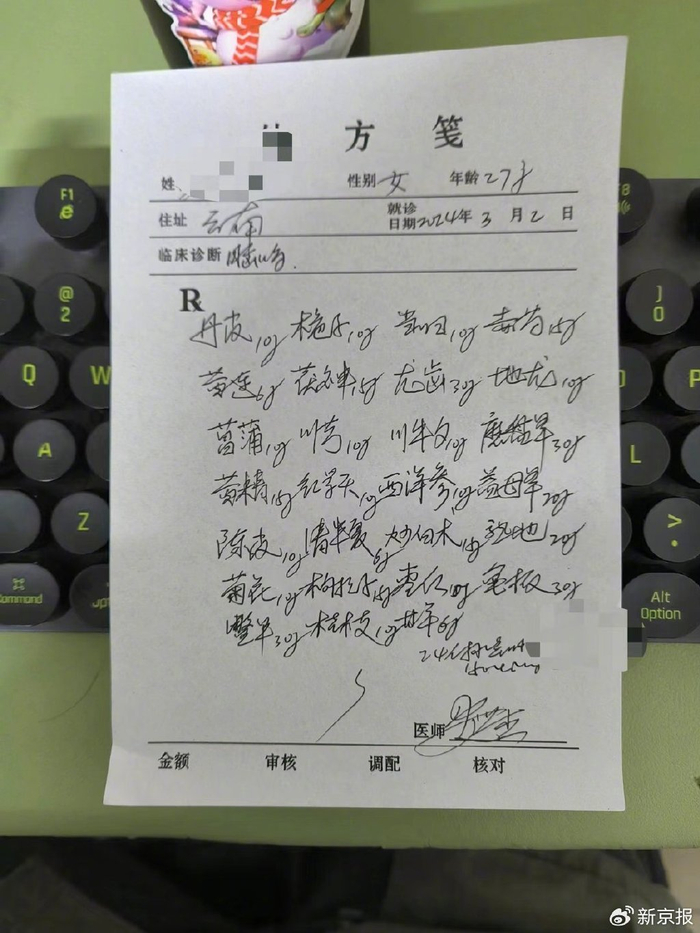 方 笺
姓 性别 女 年龄 27岁
住址 云南 就诊日期 2024年 3 月 2 日
临床诊断
R
丹皮10g 栀子10g 当归10g 赤芍15g
黄连6g 茯神15g 龙齿30g 地龙10g
菖蒲10g 川芎10g 川牛文10g 30g
黄精15g 红景天10g 西洋参10g 益母草20g
陈皮10g 清半夏 炒白术 熟地20g
菊花10g 枸杞子 枣仁 龟板30g
30g 桂枝10g 甘草6g
医师
金额 审核 调配 核对
F1
F8
@
2
)
0
Q
W
P
A
L
Z
>
.
Command
Alt
Option
新京报